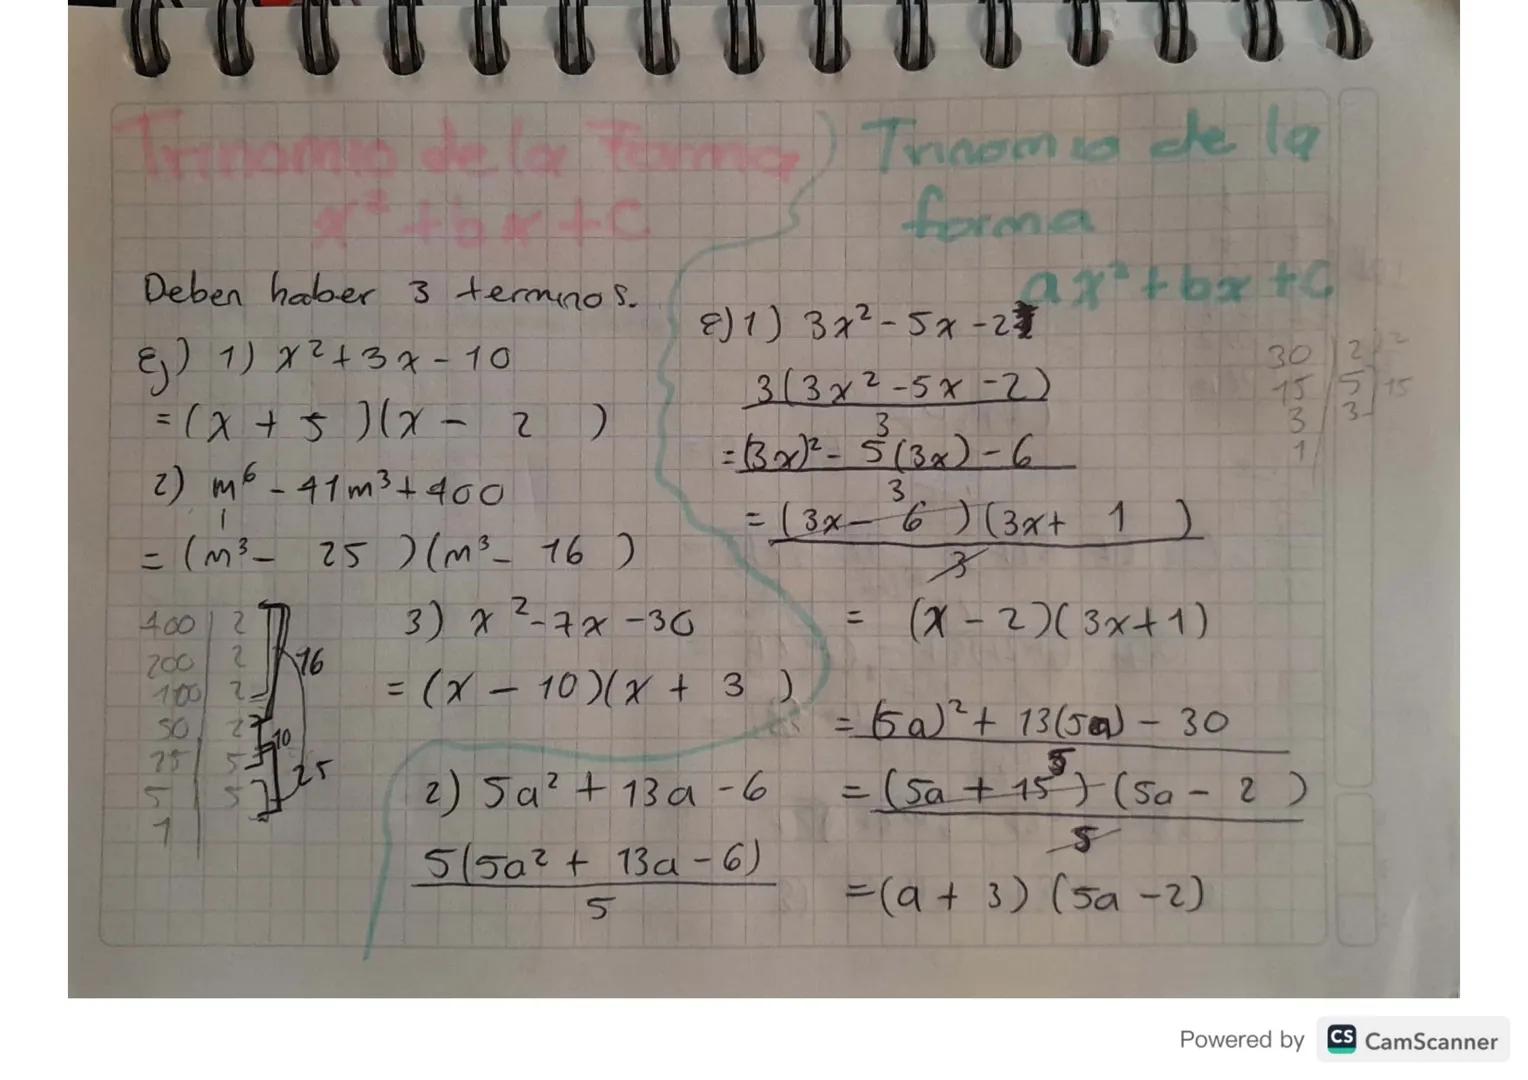 Trinomio de la Forma
x² + bx + c
Deben haber 3 terminos.
Ej) 1) x² + 3x - 10
= (x + 5 )(x - 2 )
2) m⁶ - 41m³ + 400
= (m³ - 25 )(m³ - 16 )
400 | 2
200 | 2
100 | 2
50 | 2
25 | 5
5 | 5
1
16
10
25
3) x² - 7x - 30
= (x - 10)(x + 3 )
Trinomio de la
forma
ax² + bx + c
E) 1) 3x² - 5x - 2
3(3x² - 5x - 2)
3
= (3x)² - 5(3x) - 6
3
= (3x - 6 )(3x + 1 )
3
= (x - 2)(3x + 1)
30 | 2
15 | 5
3 | 3
1
2
15
2) 5a² + 13a - 6
5(5a² + 13a - 6)
5
= (5a)² + 13(5a) - 30
5
= (5a + 15) (5a - 2 )
5
= (a + 3) (5a - 2)
Powered by CS CamScanner